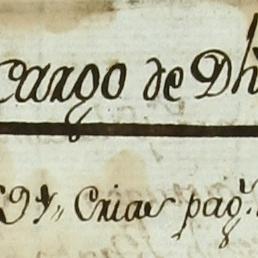 cargo de Dh
94,, Crias pag.